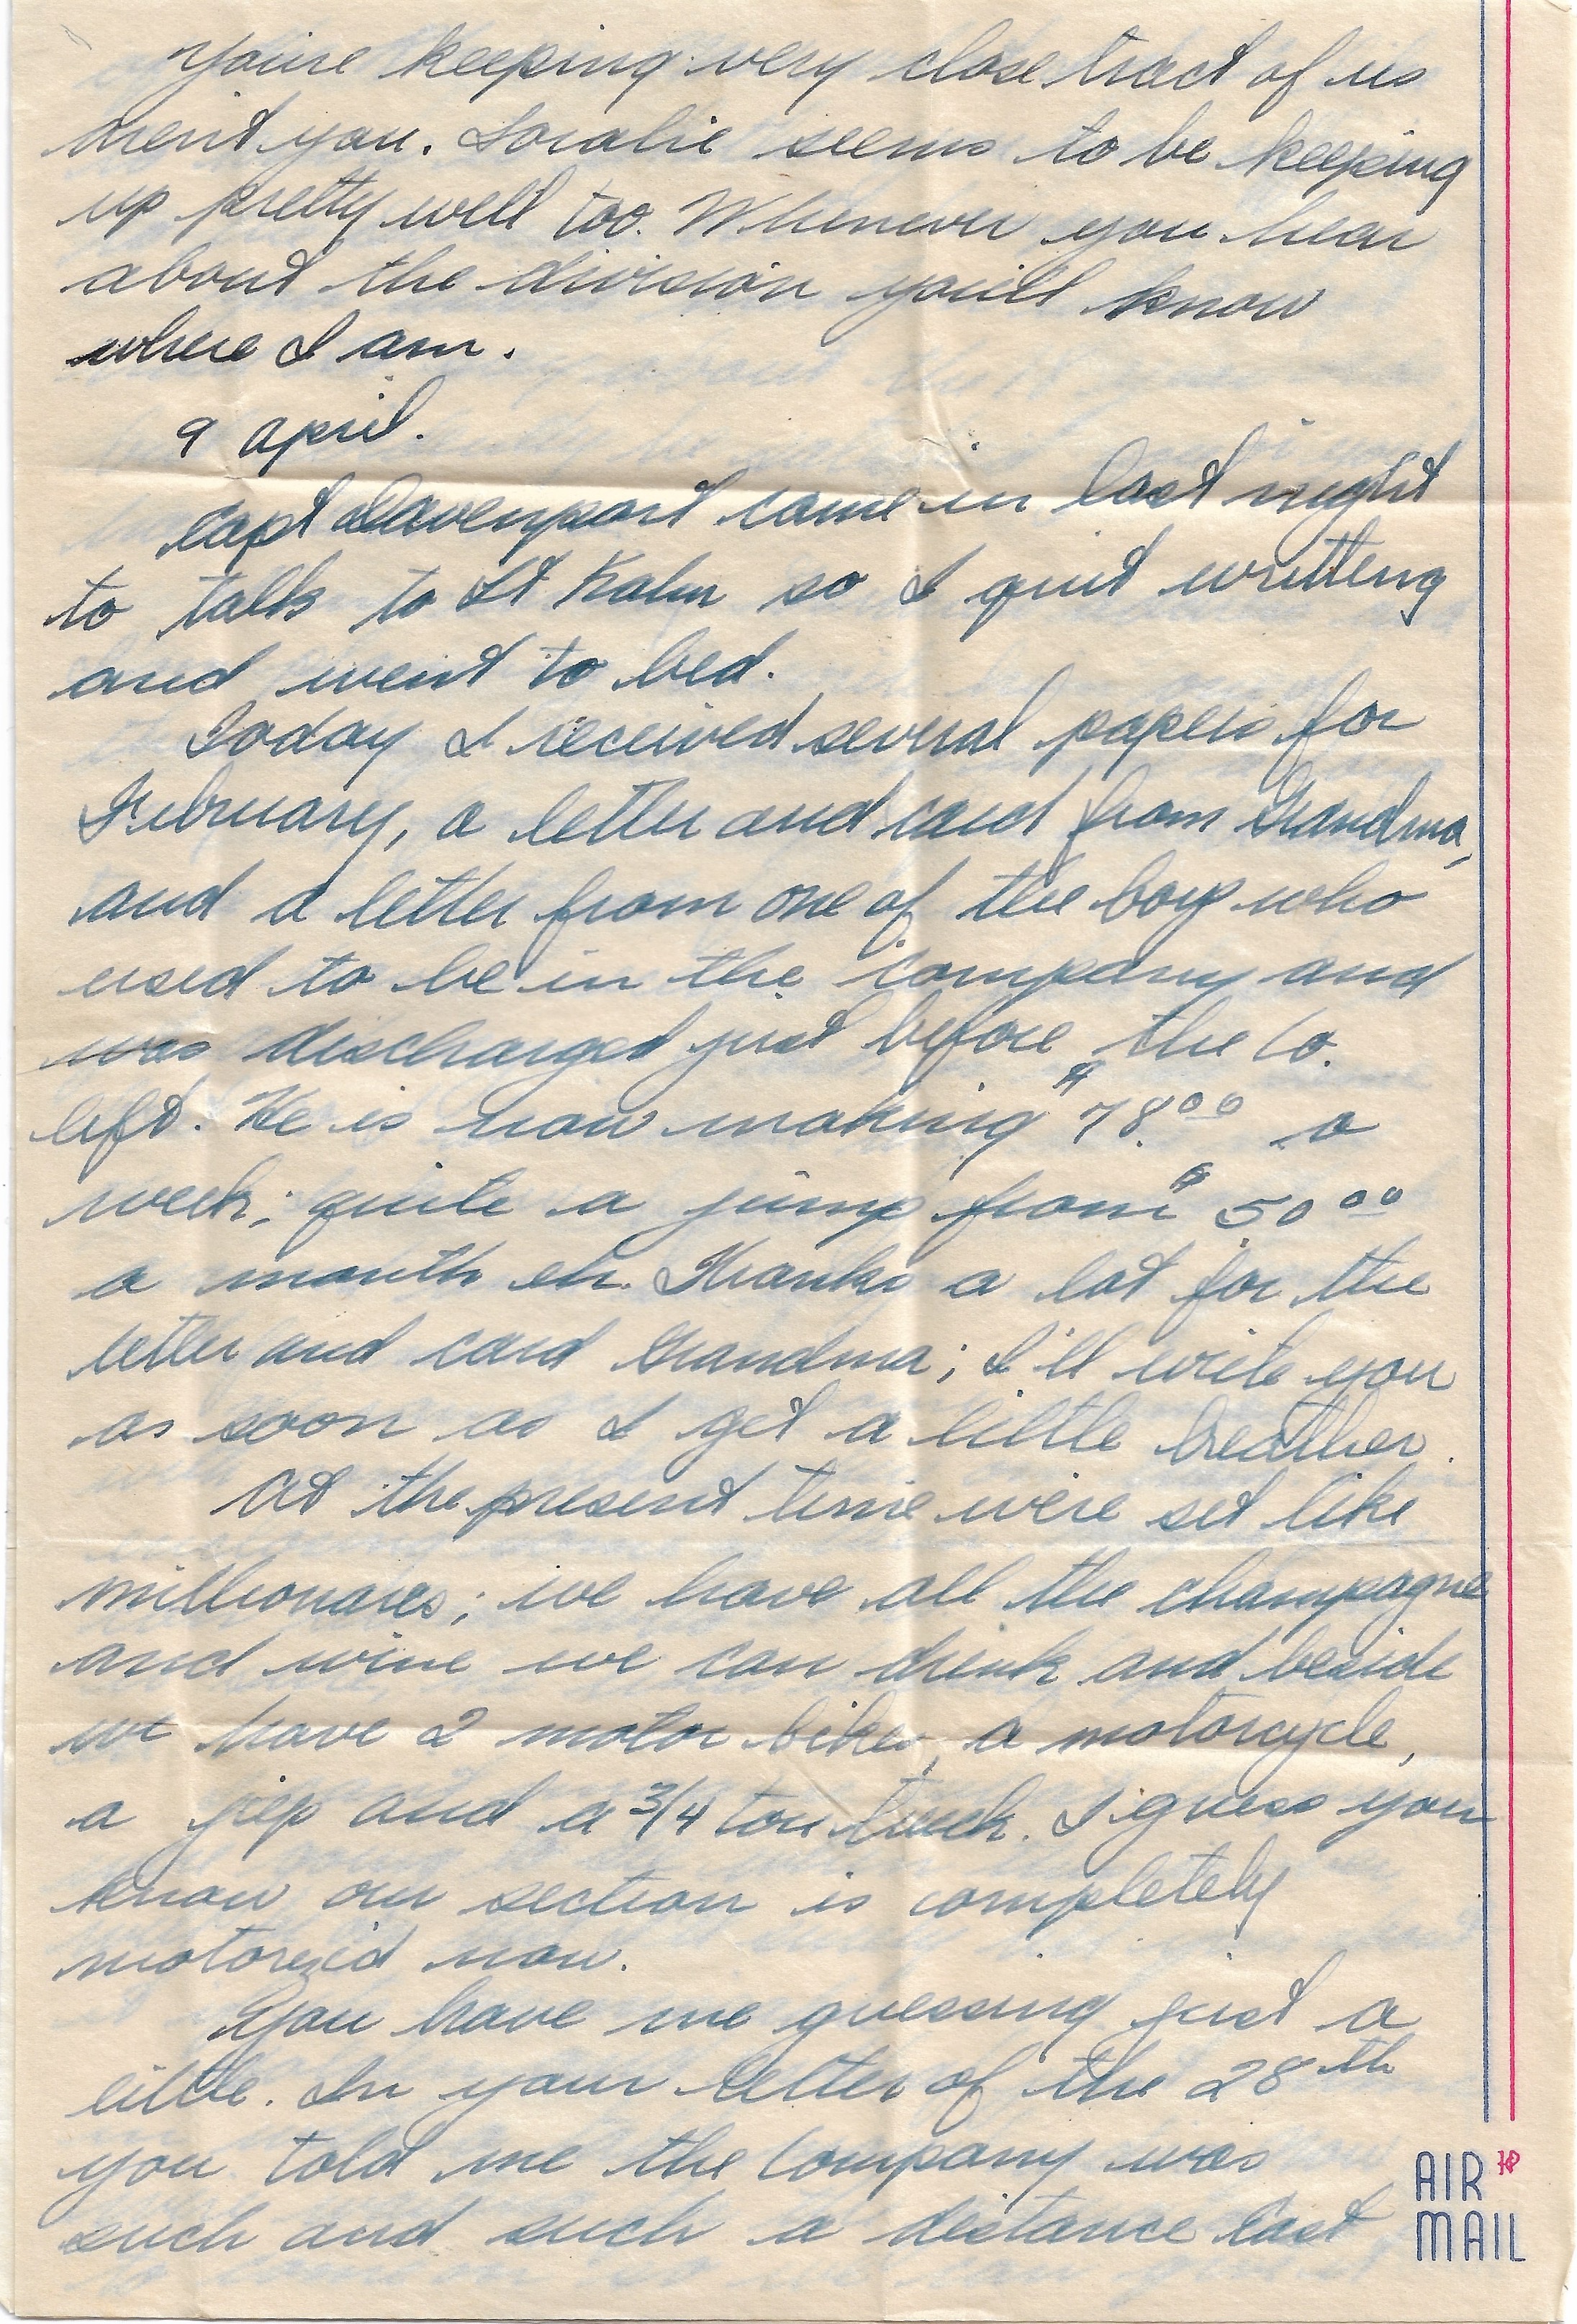 You're keeping very close tract of us
arent you. Loralie seems to be keeping
up pretty well too. Whenever you hear
about the division you'll know
where I am.
9 April.
Capt Davenport came in last night
to talk to Lt Kahn so I quit writting
and went to bed.
Today I received several papers for
February, a letter and card from Grandma,
and a letter from one of the boys who
used to be in the company and
was discharged just before the Co.
left. He is now making $78.00 a
week; quite a jump from $50.00
a month eh. Thanks a lot for the
letter and card Grandma; I'll write you
as soon as I get a little breather.
At the present time we're set like
millionares; we have all the champagne
and wine we can drink and beside
we have 2 motor bikes, a motorcycle,
a jeep and a 3/4 ton truck. I guess you
know our section is completely
motorezid now.
You have me guessing just a
little. In your letter of the 28th
you told me the Company was
such and such a distance east
AIR
MAIL